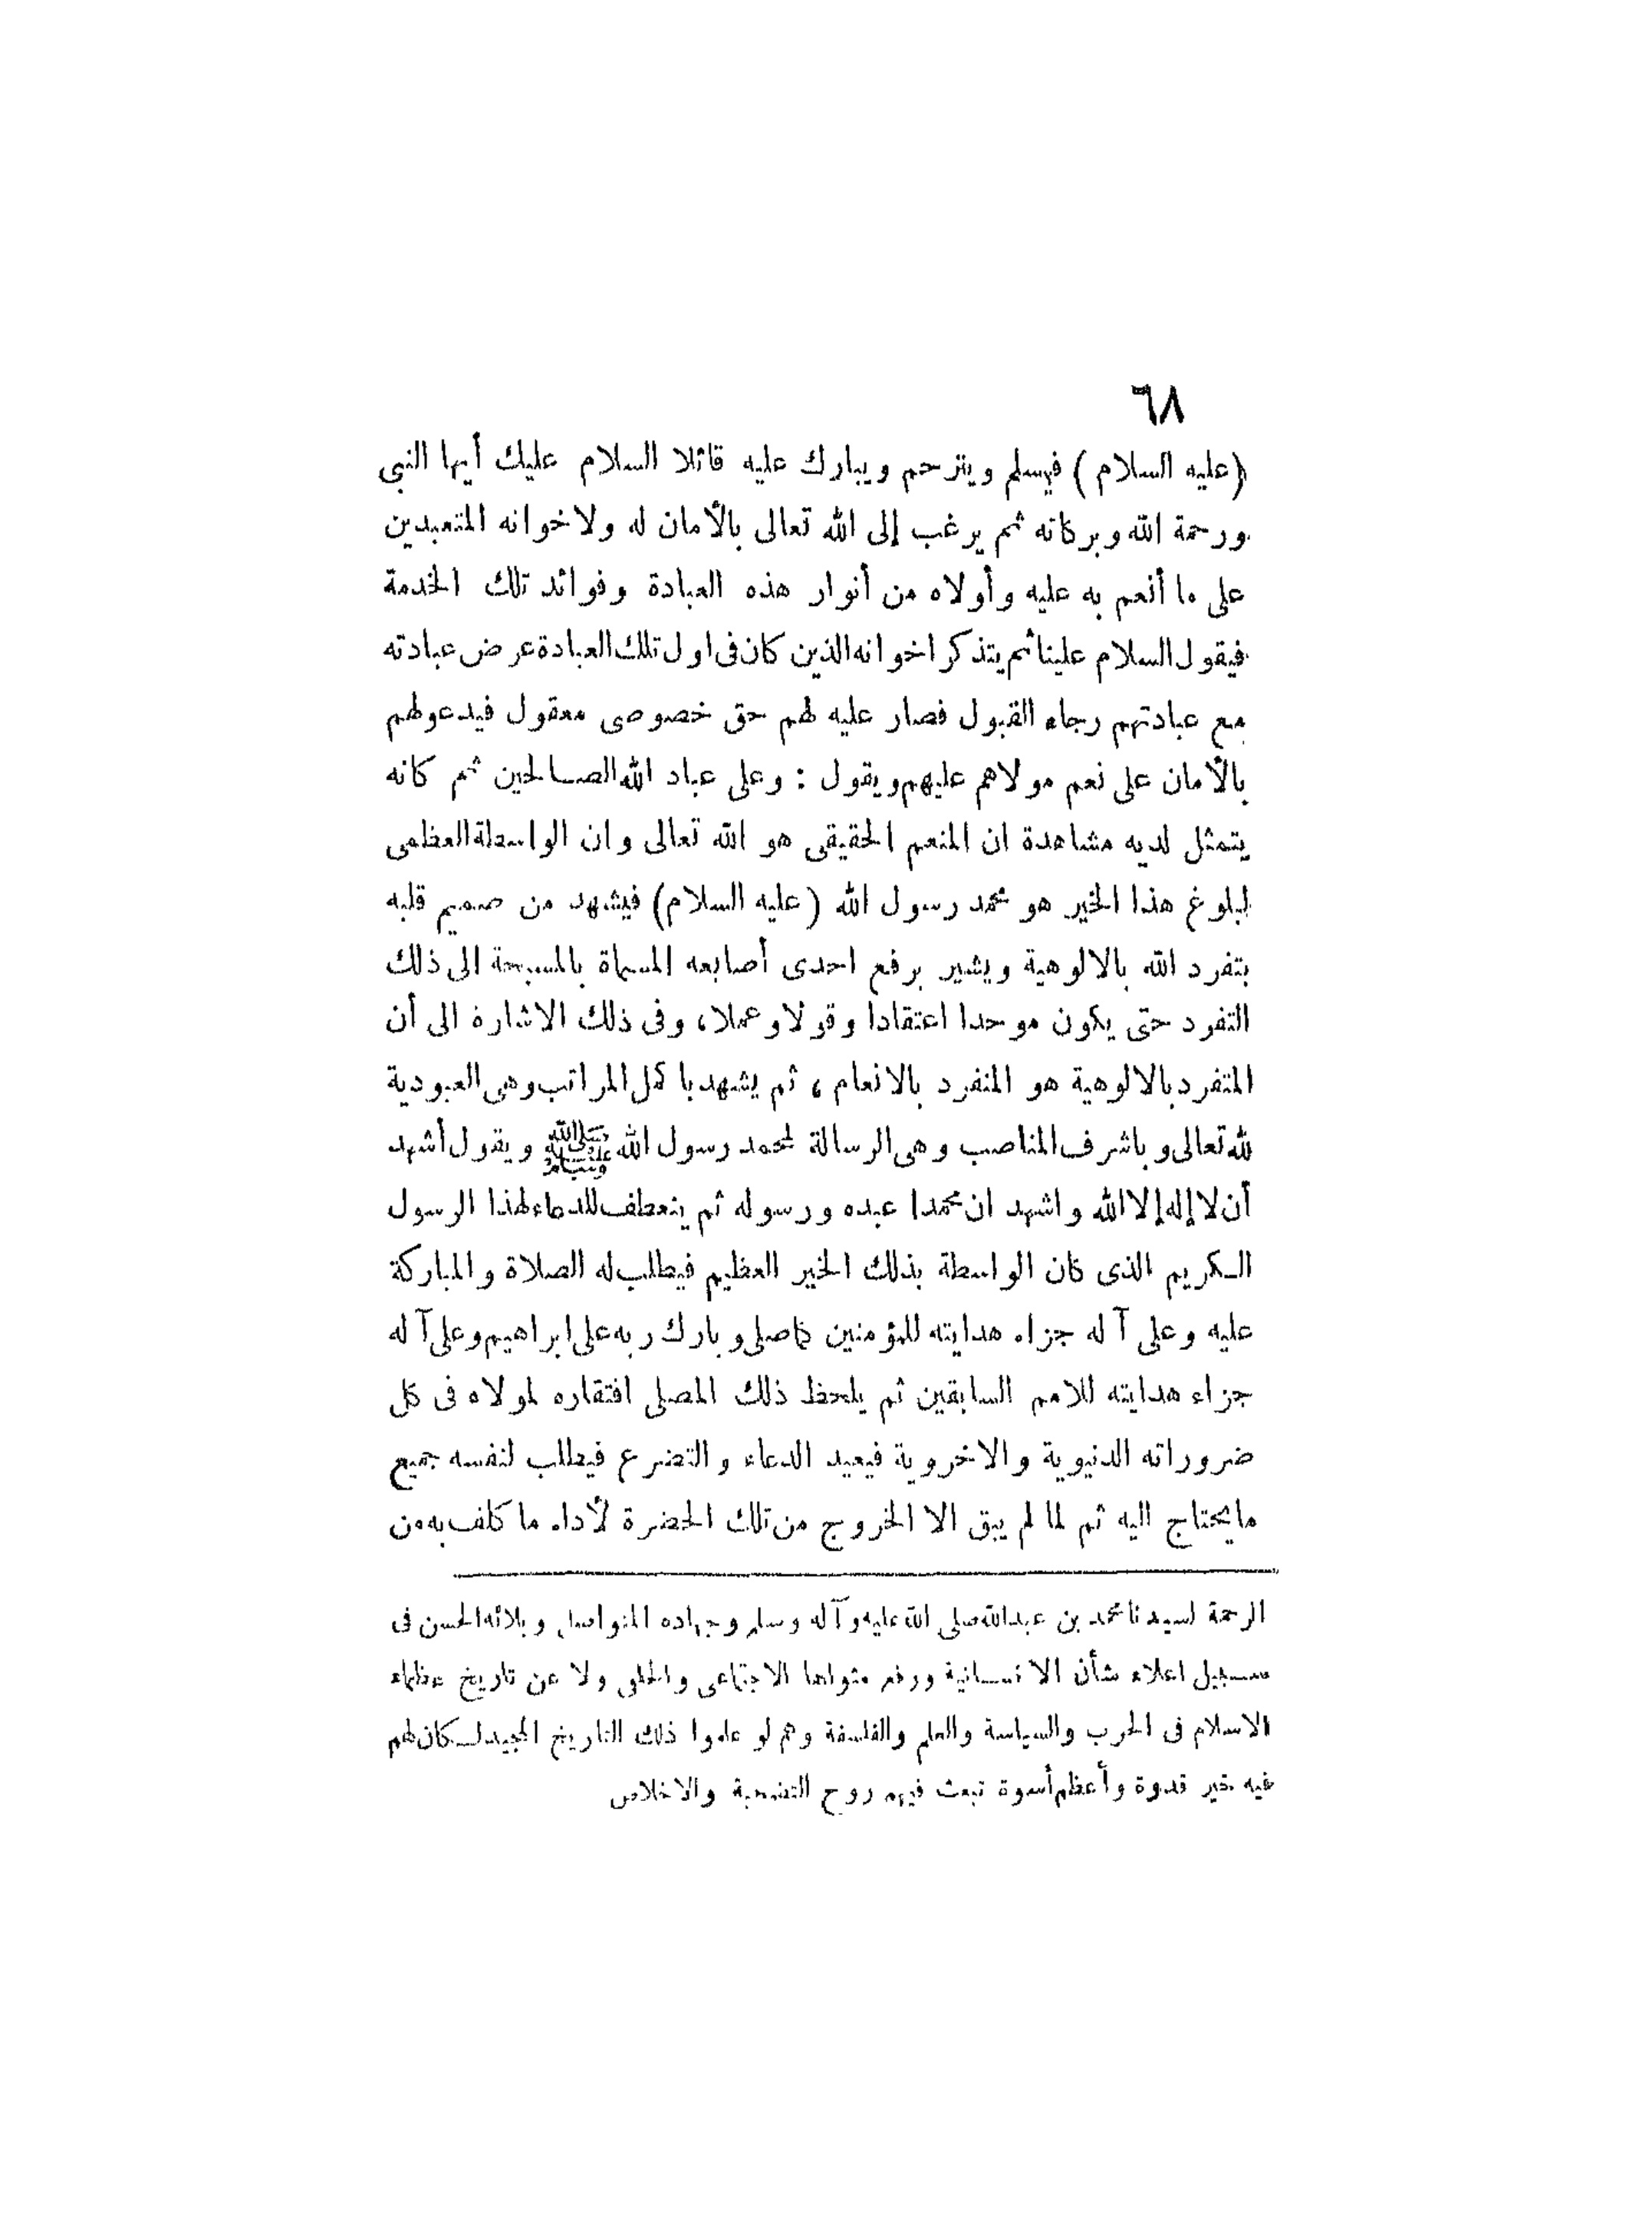 ٦٨
(عليه السلام) فيسلم ويترحم ويبارك عليه قائلا السلام عليك أيها النبي
ورحمة الله وبركاته ثم يرغب إلى الله تعالى بالأمان له ولاخوانه المتعبدين
على ما أنعم به عليه وأولاه من أنوار هذه العبادة وفوائد تلك الخدمة
فيقول السلام علينا ثم يتذكر اخوانه الذين كان فى اول تلك العبادة عرض عبادته
مع عبادتهم رجاء القبول فصار عليه لهم حق خصوصى معقول فيدعولهم
بالأمان على نعم مولاهم عليهم ويقول : وعلى عباد الله الصالحين ثم كانه
يتمثل لديه مشاهدة ان المنعم الحقيقى هو الله تعالى وان الواسطة العظمى
لبلوغ هذا الخير هو محمد رسول الله (عليه السلام) فيشهد من صميم قلبه
بتفرد الله بالالوهية ويشير برفع احدى أصابعه المسماة بالمسبحة الى ذلك
التفرد حتى يكون موحدا اعتقادا وقولا وعملا، وفى ذلك الاشارة الى أن
المتفرد بالالوهية هو المنفرد بالانعام، ثم يشهد با كمل المراتب وهى العبودية
لله تعالى وباشرف المناصب وهى الرسالة لمحمد رسول الله ﷺ ويقول أشهد
أن لا إله إلا الله واشهد ان محمدا عبده ورسوله ثم ينعطف للدعاء لهذا الرسول
الكريم الذى كان الواسطة بذلك الخير العظيم فيطلب له الصلاة والمباركة
عليه وعلى آله جزاء هدايته للمؤمنين كما صلى وبارك ربه على ابراهيم وعلى آله
جزاء هدايته للامم السابقين ثم يلحظ ذلك المصلى افتقاره لمولاه فى كل
ضروراته الدنيوية والاخروية فيعيد الدعاء والتضرع فيطلب لنفسه جميع
ما يحتاج اليه ثم لما لم يبق الا الخروج من تلك الحضرة لأداء ما كلف به من
الرحمة لسيدنا محمد بن عبد الله صلى الله عليه وآله وسلم وجهاده المتواصل وبلائه الحسن فى
سبيل اعلاء شأن الانسانية ورفع مثواها الاجتماعى والخلقى ولا عن تاريخ عظماء
الاسلام فى الحرب والسياسة والعلم والفلسفة وهم لو علموا ذلك التاريخ المجيد لكان لهم
فيه خير قدوة وأعظم أسوة تبعث فيهم روح التضحية والاخلاص